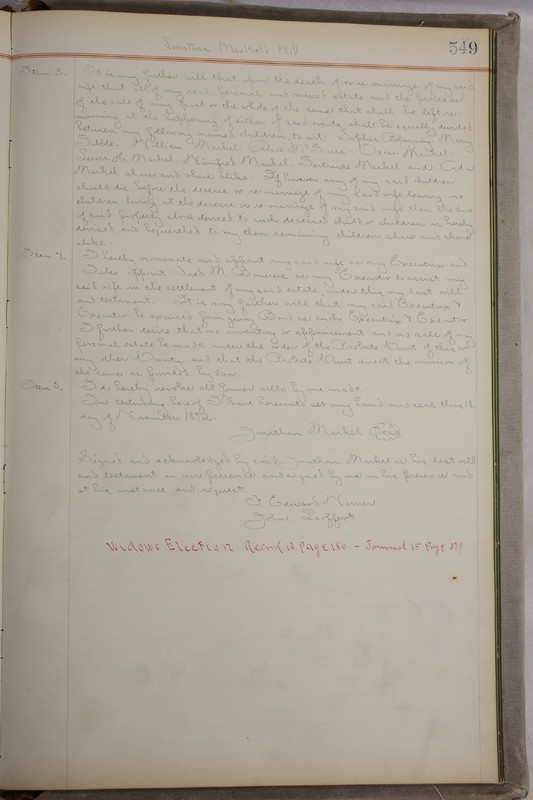 549
Jonathan Markel's Will
Item 3. It is my further will that upon the death or re marriage of my said
wife that all of my real, personal and mixed estate and the proceeds
of the sale of any part or the whole of the same that shall be left re-
maining at the happening of either of said events shall be equally divided
between my following named children, to wit: Sophia Mary
William Markel, Alice Markel
Markel, Winifred Markel, Gertrude Markel and
Markel share and share alike. If however any of my said children
should die before the decease or re-marriage of my said wife leaving no
children living at the decease or re-marriage of my said wife then the share
of said property above devised to such deceased child or children is hereby
devised and bequeathed to my then remaining children share and share
alike.
Item 4. I hereby nominate and appoint my said wife as my Executrix and
I also appoint Fred M. as my Executor to assist my
said wife in the settlement of my said estate, under this my last will
and testament. It is my further will that my said Executrix &
Executor be excused from giving Bond as such Executrix & Executor
I further desire that no inventory or appraisement and no sale of my
personal estate be made under the order of the Probate Court of this or
any other County, and that the Probate Court direct the omission of
the same as provided by law.
Item 5. I do hereby revoke all former wills by me made.
In testimony hereof I have hereunto set my hand and seal this 18
day of November 1892.
Jonathan Markel Seal
Signed and acknowledged by said Jonathan Markel as his last will
and testament in our presence and signed by us in his presence and
at his instance and request.
Edward
John
Widows Election Record 12 Page 186 - Journal 15 Page